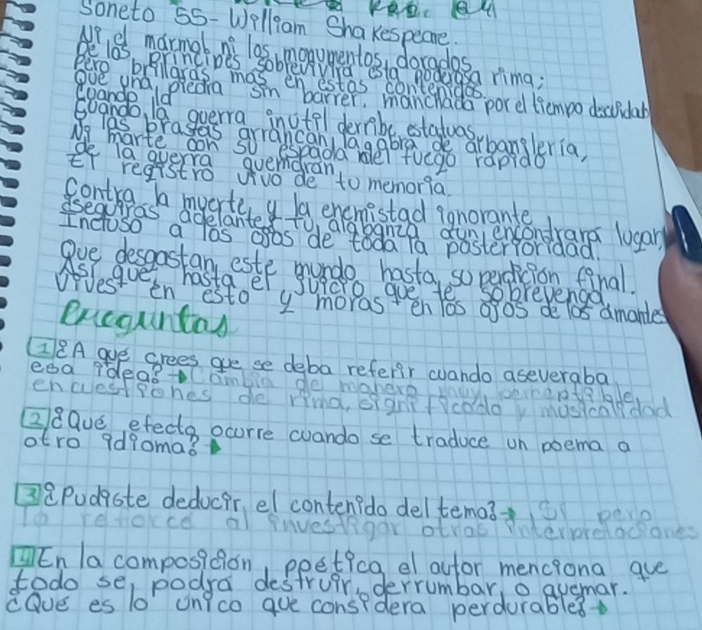 Soneto 55- William Shakespeare.
Ni el mármol, ni los monumentos dorados
De los príncipes sobrevivirá esta poderosa rima;
Pero brillarás mas en estos contenidos
Que una piedra sin barrer, manchada por el tiempo descuidado
Cuando la guerra inutil derribe estatuas,
Ni marte con su espada ni el fuego rápido
De la guerra quemaran
El registro vivo de tu memoria.
Contra la muerte y la enemistad ignorante
seguiras adelante; tu alabanza aun encontrara lugar
Incluso a los ojos de toda la posterioridad
Que desgastan este mundo hasta su perdición final.
Así que, hasta el juicio que te sobrevenga,
Vives en esto y moras en los ojos de los amantes
Preguntas
1 ¿A qué crees que se deba referir cuando aseveraba
esa idea? Cambia de manera muy perceptible
en cuestiones de rima, significado y musicalidad
2 ¿Qué efecto ocurre cuando se traduce un poema a
otro idioma?
3 ¿Pudiste deducir el contenido del tema? Si pero
lo reforce al investigar otras interpretaciones
4 En la composición poética el autor menciona que
todo se podrá destruir, derrumbar o quemar.
¿Qué es lo único que considera perdurable?